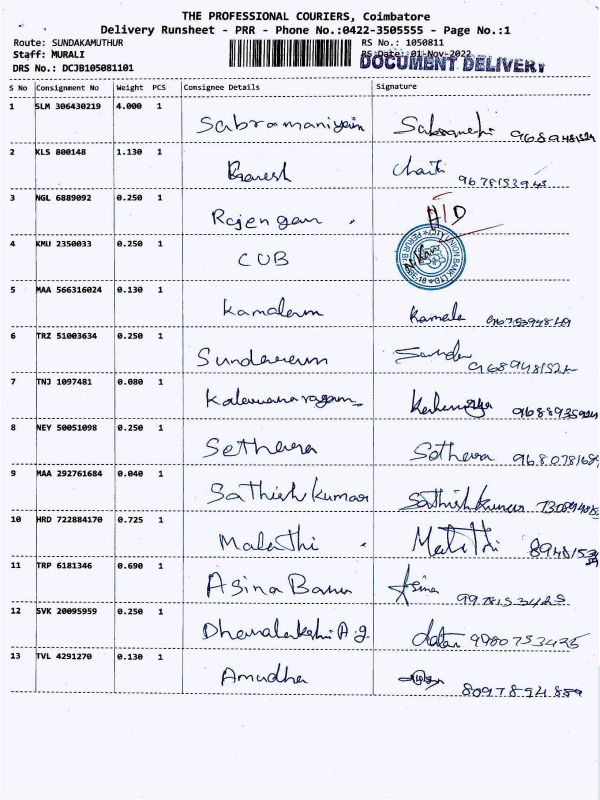 THE PROFESSIONAL COURIERS, Coimbatore
Delivery Runsheet - PRR - Phone No.:0422-3505555 - Page No.:1
Route: SUNDAKAMUTHUR RS No.: 1050811
Staff: MURALI RS Date: 01-Nov-2022
DRS No.: DCJB105081101 DOCUMENT DELIVERY
S No Consignment No Weight PCS Consignee Details Signature
1 SLM 306430219 4.000 1 Sabramaniyain
2 KLS 800148 1.130 1
3 NGL 6889092 0.250 1 Rajengan
4 KMU 2350033 0.250 1 CUB
5 MAA 566316024 0.130 1 Kamalam Kamala
6 TRZ 51003634 0.250 1 Sundaram 9689481524
7 TNJ 1097481 0.080 1
8 NEY 50051098 0.250 1 Sethera Sethera
9 MAA 292761684 0.040 1 Sathishkumar Sathishkumar
10 HRD 722884170 0.725 1 Malathi Malathi
11 TRP 6181346 0.690 1 Asina Banu Asina
12 SVK 20095959 0.250 1
13 TVL 4291270 0.130 1 Amudha